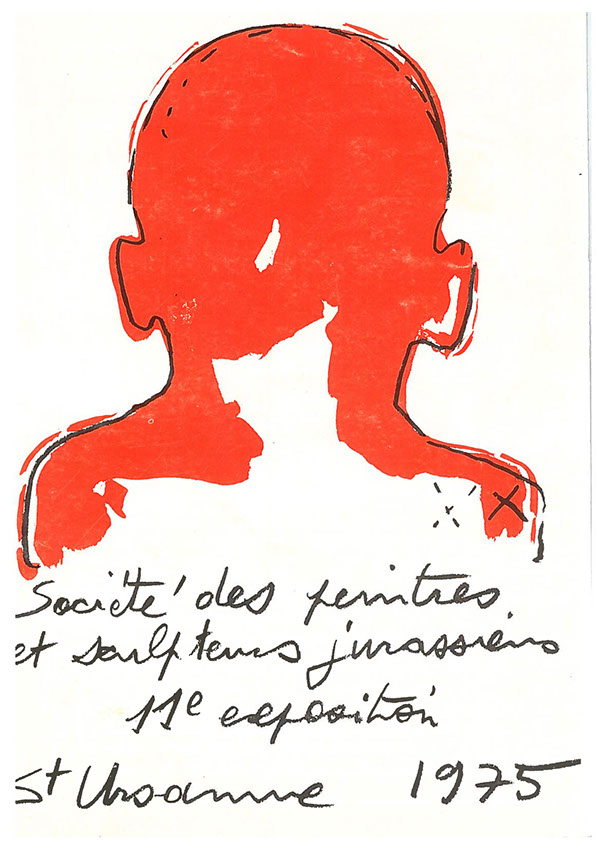 Société des peintres
et sculpteurs jurassiens
11e exposition
St Ursanne 1975